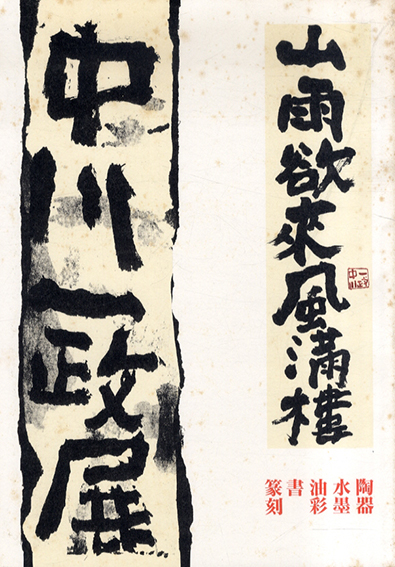 山雨欲來風満樓
中川一政
陶器
水墨
油彩
書
篆刻
中川一政展